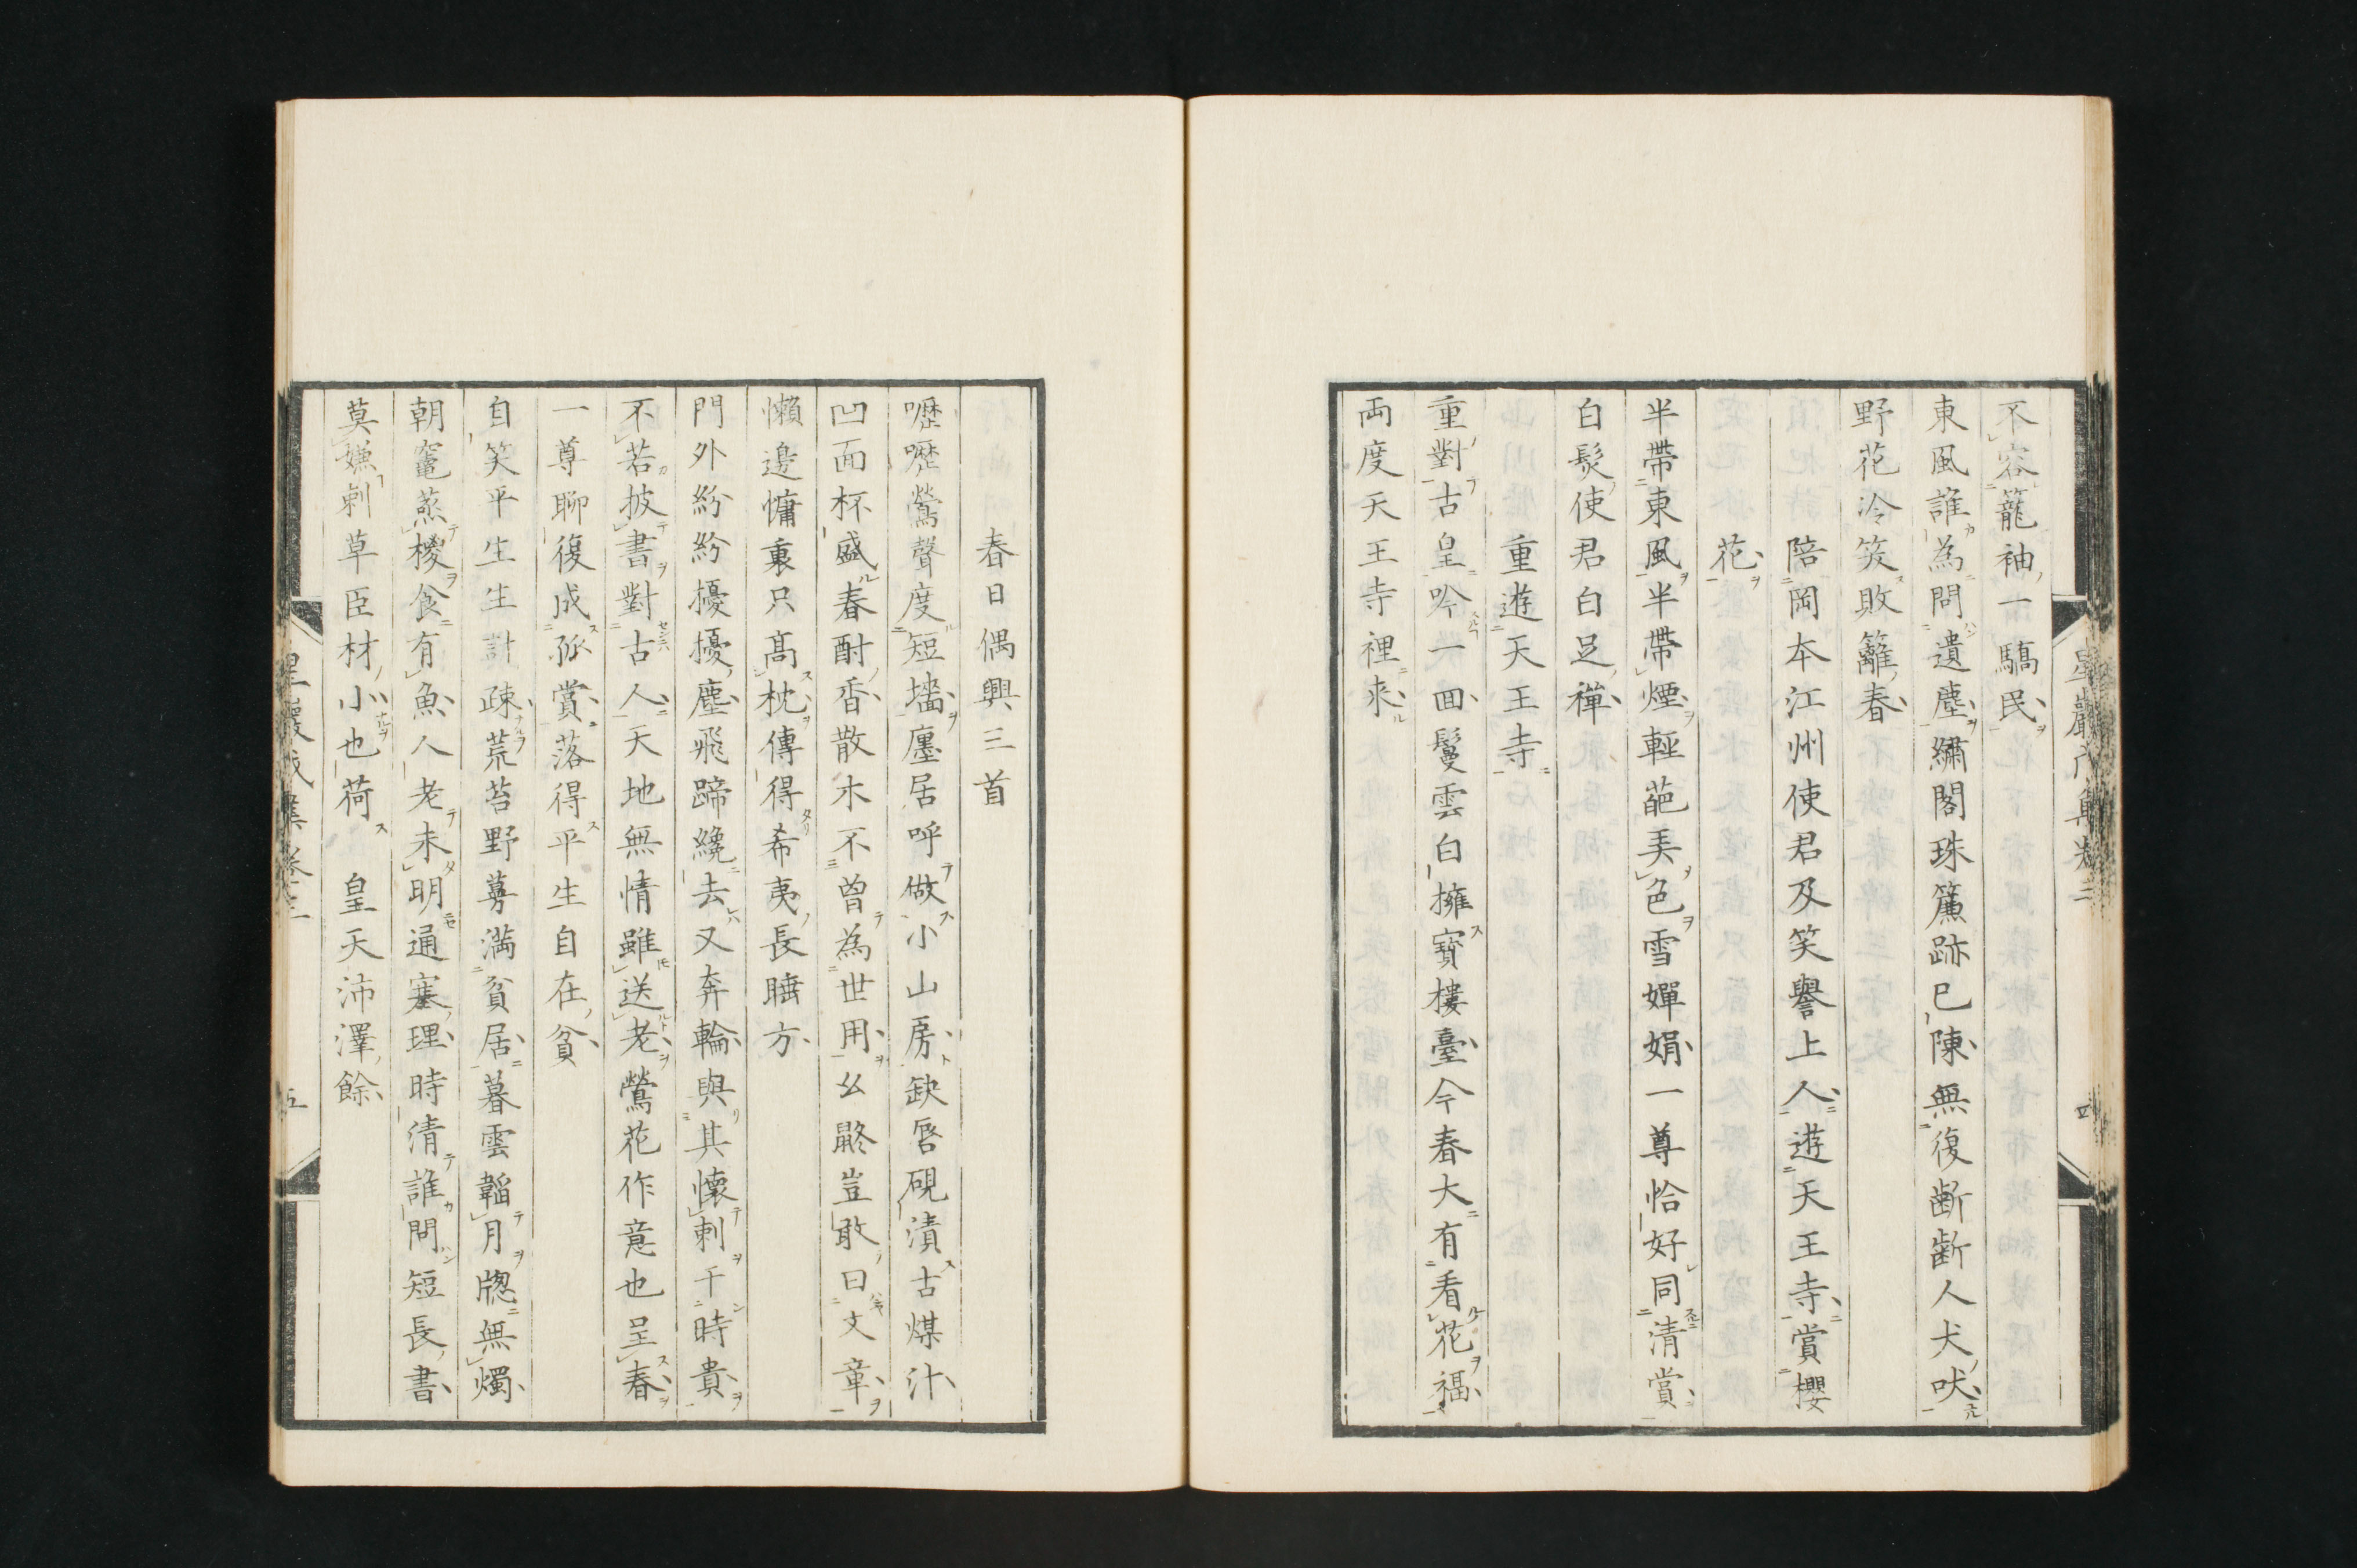 不容籠袖一驕民
東風誰為問遺塵繡閣珠簾跡已陳無復齗齗人犬吠
野花冷笑敗籬春
陪岡本江州使君及笑譽上人遊天王寺賞櫻
花
半帶東風半帶煙輕葩美色雪嬋娟一尊恰好同清賞
白髮使君白足禪
重遊天王寺
重對古皇吟一回鬘雲白擁寳樓臺今春大有看花福
両度天王寺裡來
四
春日偶興三首
嚦嚦鶯聲度短墻廛居呼做小山房缺唇硯漬古煤汁
凹面杯盛春酎香散木不曾為世用幺嚴豈敢曰文章
懶邊慵裏只高枕傳得希夷長睡方
門外紛紛擾擾塵飛蹄纔去又奔輪與其懷刺干時貴
不若披書對古人天地無情雖送老鶯花作意也呈春
一尊聊復成孤賞落得平生自在貧
自笑平生生計疎荒苔野蔓満貧居暮雲韜月牕無燭
朝竃蒸㮨食有魚人老未明通塞理時清誰問短長書
莫嫌剩草臣材小也荷　皇天沛澤餘
星巖戊集卷三
五